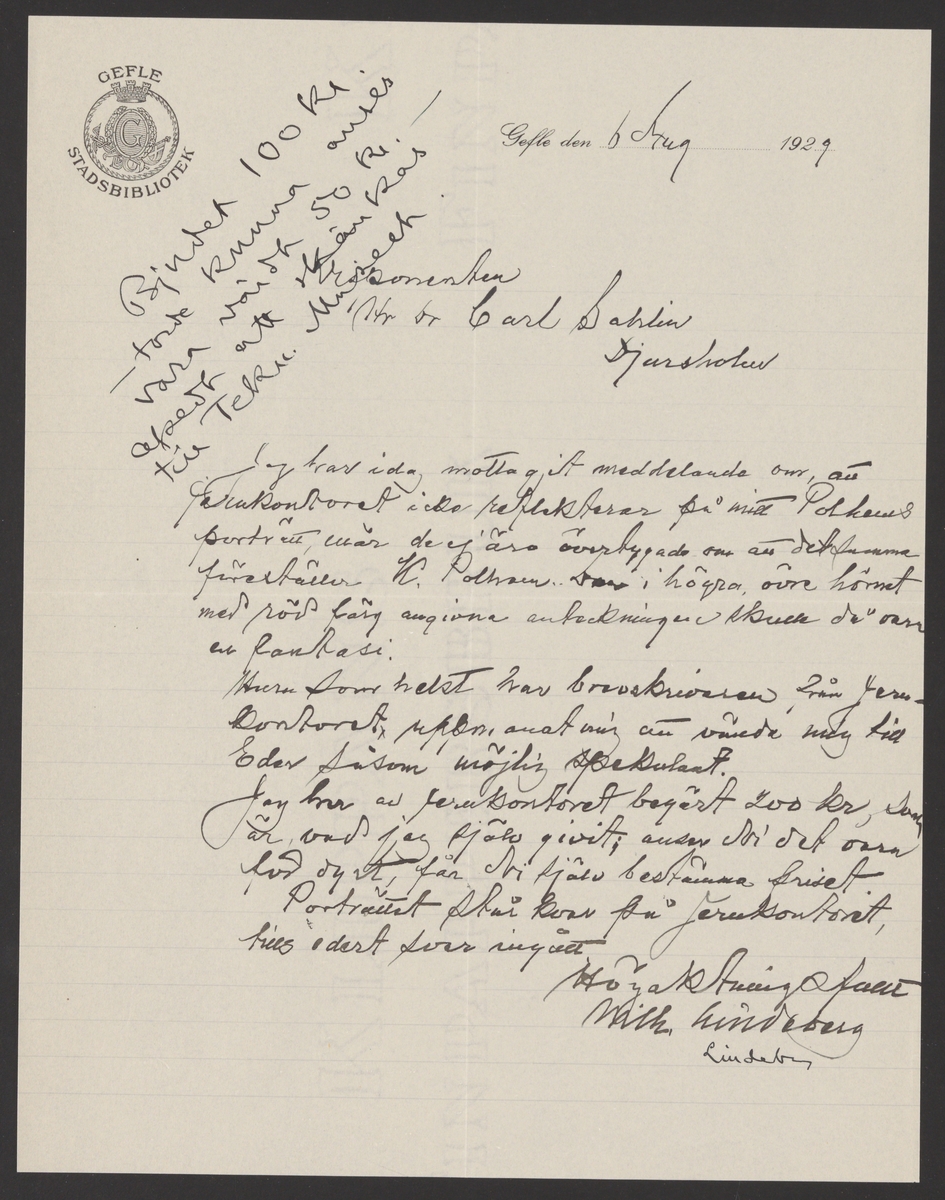 GEFLE
STADSBIBLIOTEK
G
Gefle den 6 Aug 1929
Bjudet 100 kr
torde kunna anses
vara värdt 50 kr
afsedt att skänkas
till Tekn. Museet
Disponenten
Hr Dr Carl Sahlin
Djursholm
Jag har idag mottagit meddelande om, att
Jernkontoret icke reflekterar på mitt Polhems
porträtt, när de ej äro övertygade om att detsamma
föreställer K. Polhem. i högra övre hörnet
med röd färg angivna anteckningen skulle då vara
en fantasi.
Huru som helst har brevskrivaren från Jern-
kontoret, uppmanat mig att vända mig till
Eder såsom möjlig spekulant.
Jag har av Jernkontoret begärt 200 kr, som
är, vad jag själv givit; anser Ni det vara
för dyrt, får Ni själv bestämma priset.
Porträttet står kvar på Jernkontoret,
tills edert svar ingått.
Högaktningsfullt
Wilh. Lindeberg
Lindeberg